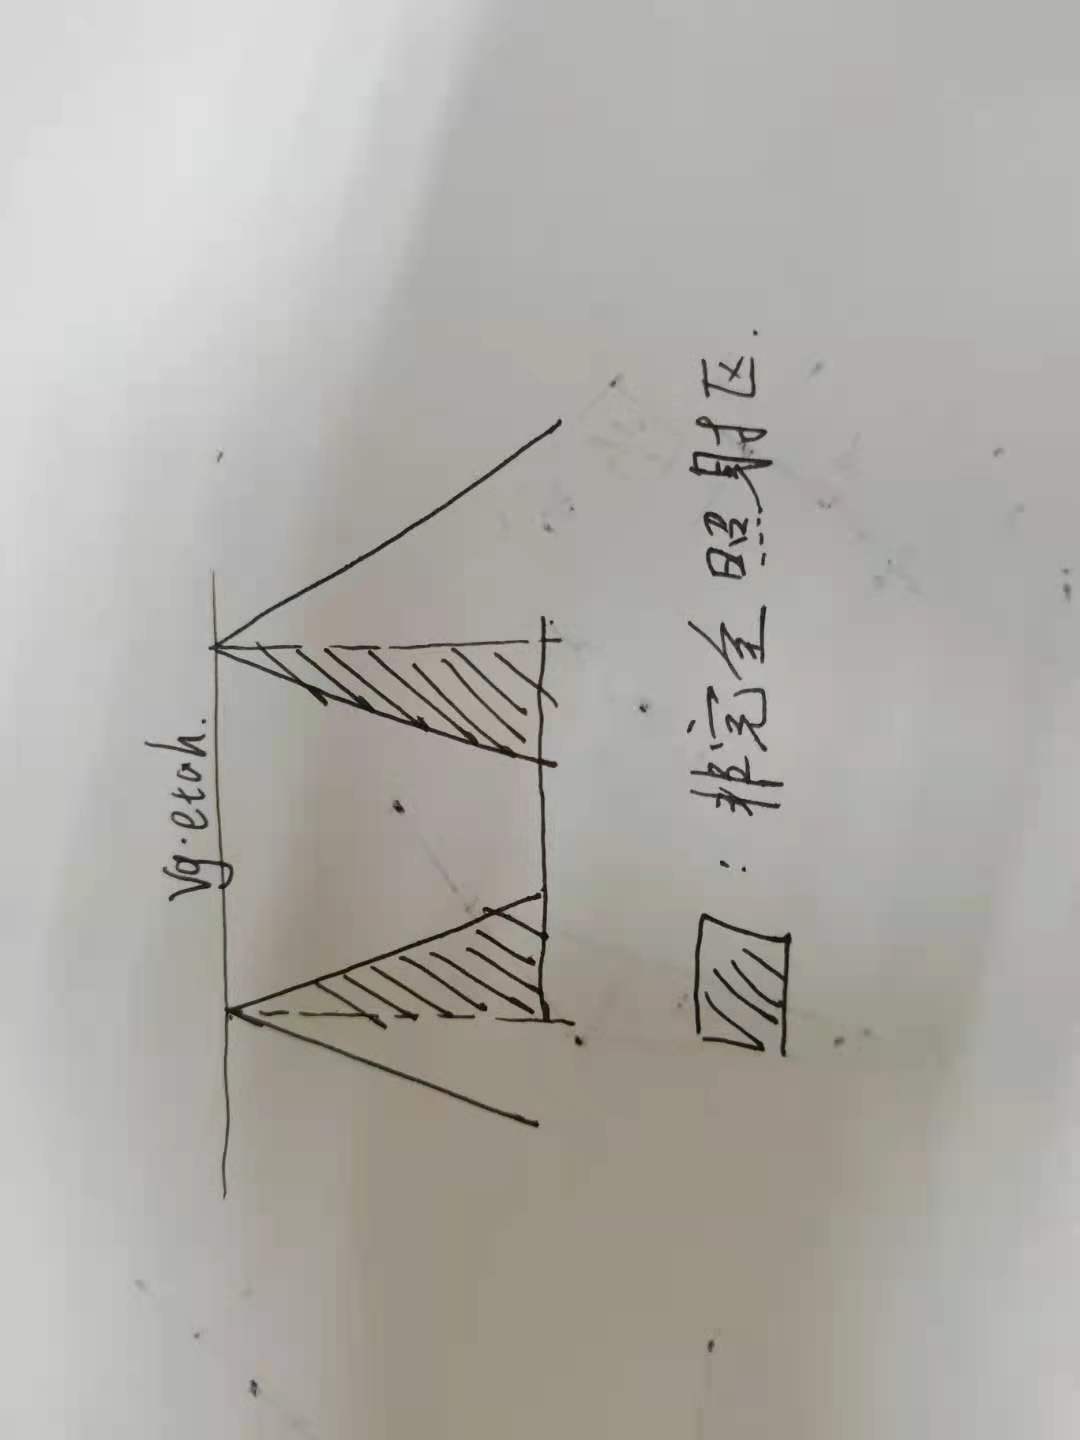 Vg.etah.
: 非完全照射区.